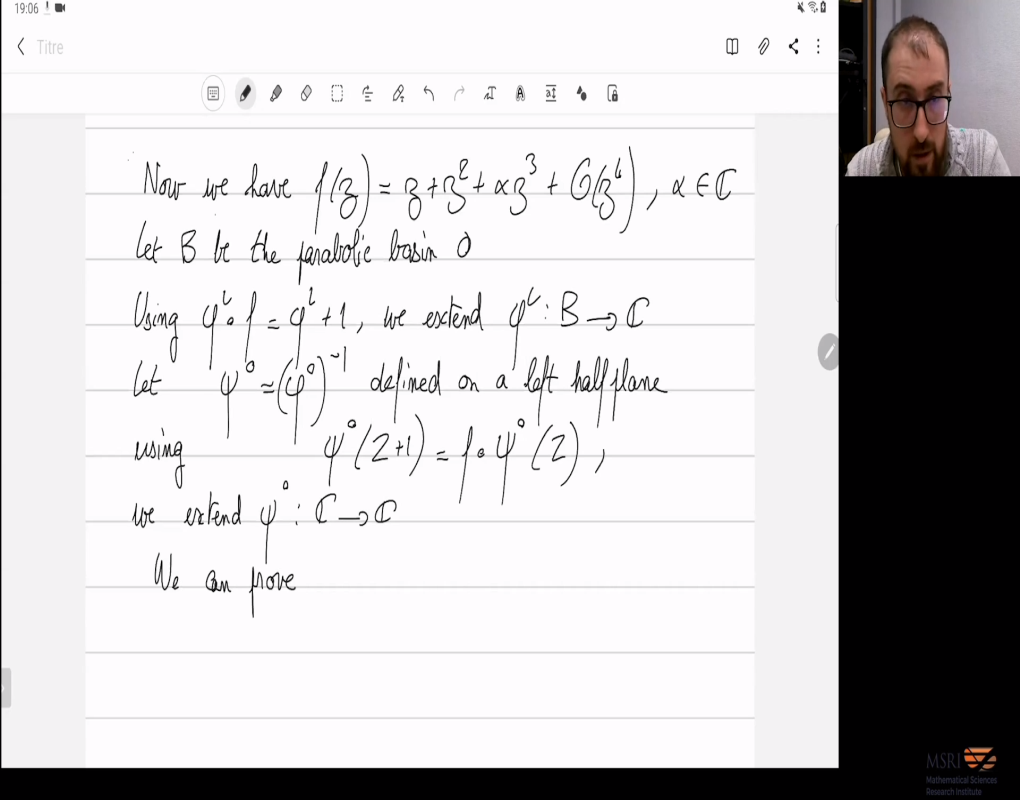 19:06
Titre
Now we have f(z) = z + z² + αz³ + O(z⁴), α ∈ ℂ
Let B be the parabolic basin 0
Using φᶫ∘f = φᶫ + 1, we extend φᶫ : B → ℂ
Let ψ⁰ = (φ⁰)⁻¹ defined on a left halfplane
using ψ⁰(Z+1) = f∘ψ⁰(Z),
we extend ψ⁰ : ℂ → ℂ
We can prove
MSRI
Mathematical Sciences
Research Institute